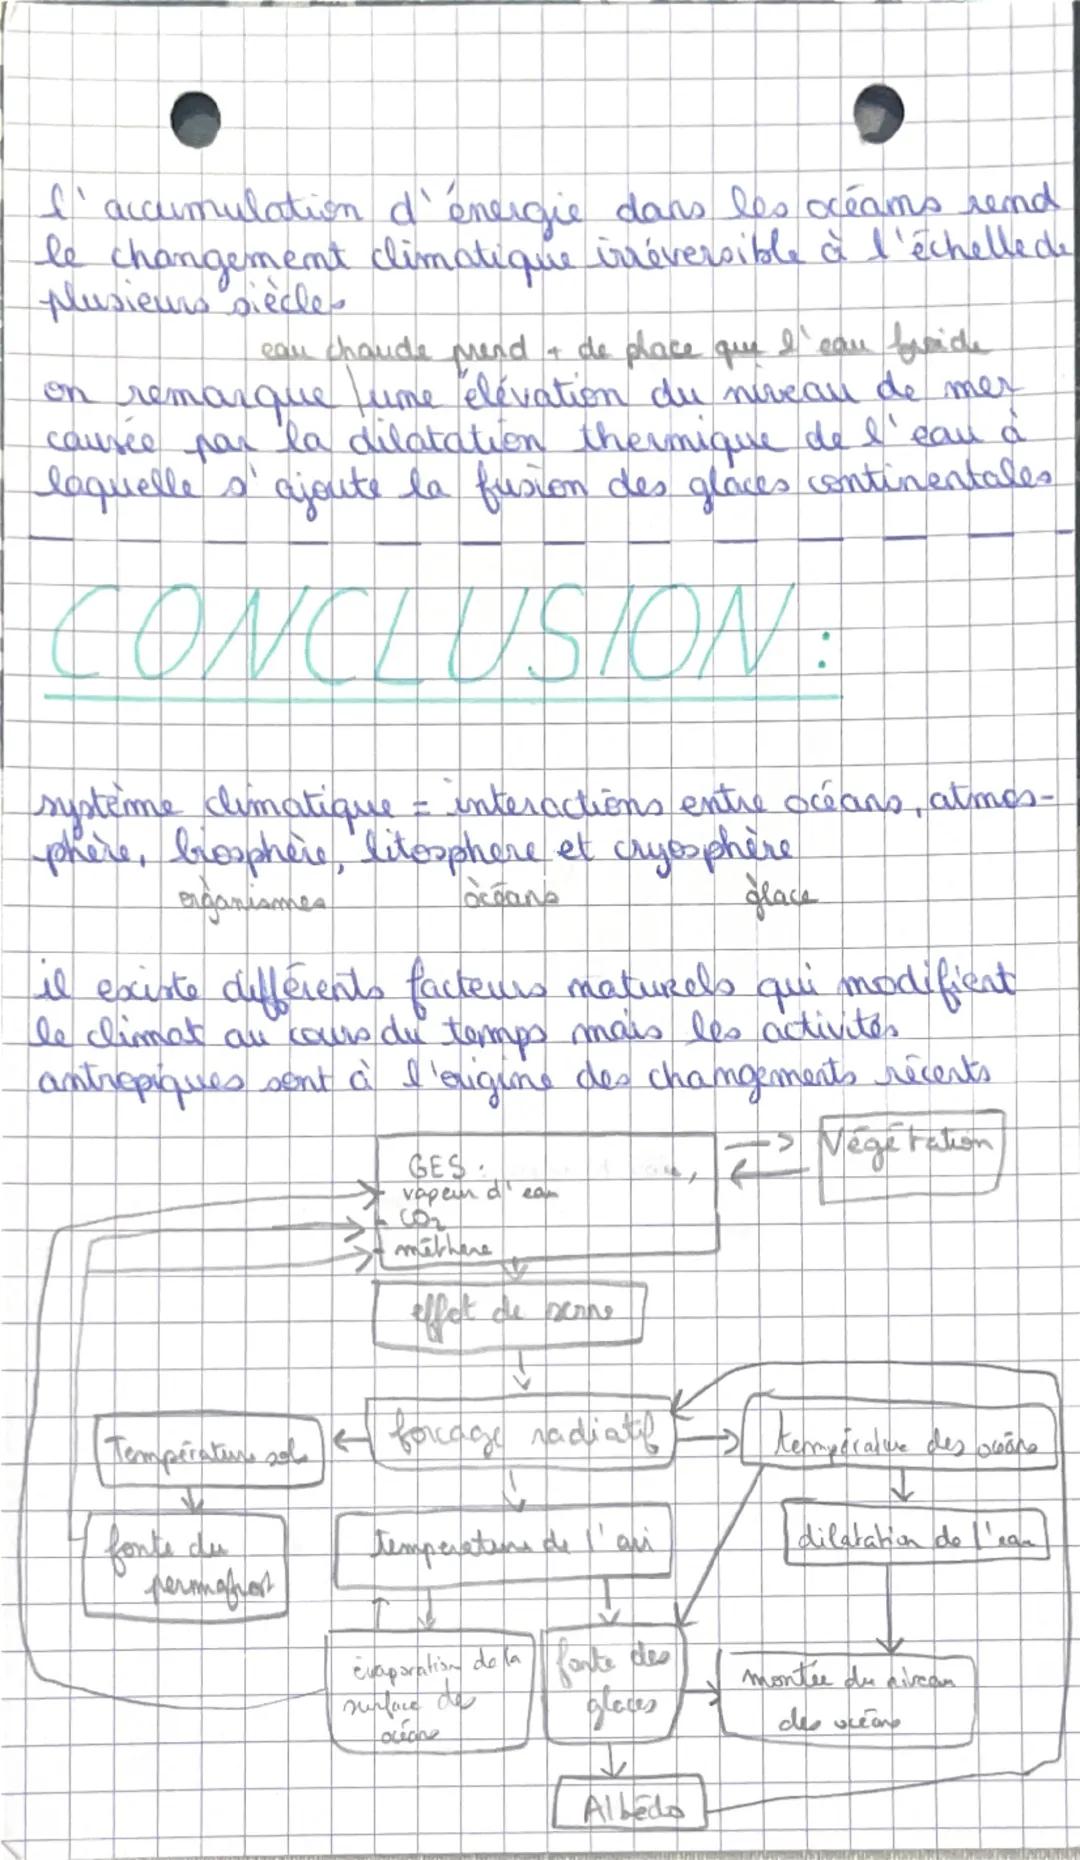 l'accumulation d'énergie dans les océans rend
le changement climatique irréversible à l'échelle de
plusieurs siècles
eau chaude prend + de place que l'eau froide
on remarque une élévation du niveau de mer
causée par la dilatation thermique de l'eau à
laquelle s'ajoute la fusion des glaces continentales
CONCLUSION :
système climatique = interactions entre océans, atmos-
phère, biosphère, litosphere et cryosphère
organismes océans glace
il existe différents facteurs naturels qui modifient
le climat au cours du temps mais les activités
antropiques sont à l'origine des changements récents
GES :
vapeur d'eau
CO2
méthane
Végétation
effet de serre
forcage radiatif
Température sol
température des océans
fonte du
permafrost
température de l'air
dilatation de l'eau
évaporation de la
surface des
océans
fonte des
glaces
montée du niveau
des océans
Albédo